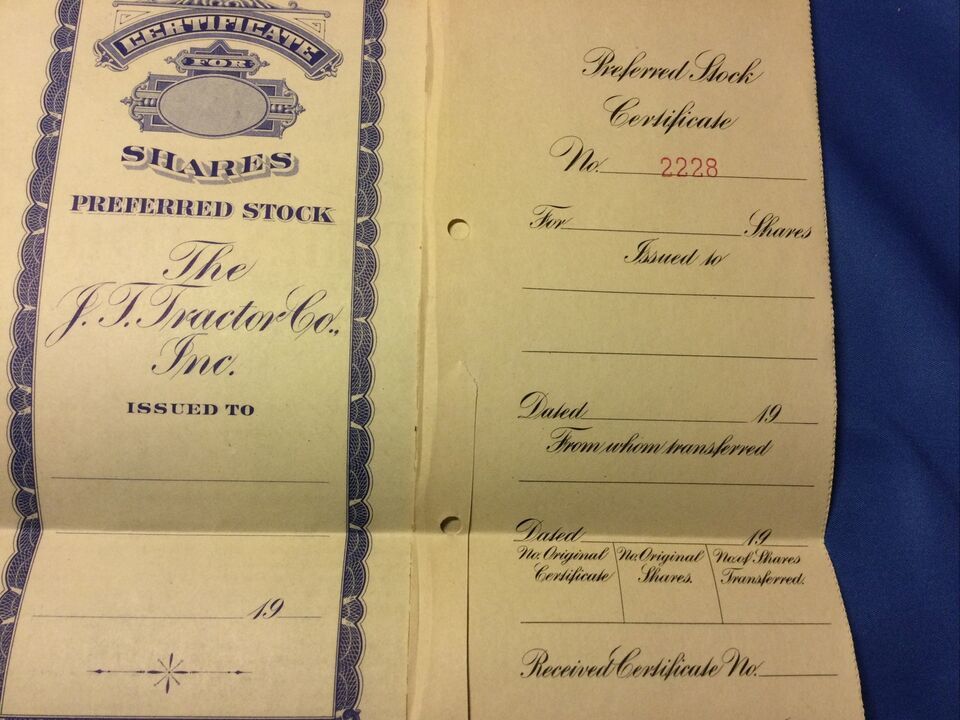 CERTIFICATE
FOR
SHARES
PREFERRED STOCK
The
J. T. Tractor Co.,
Inc.
ISSUED TO
19
Preferred Stock
Certificate
No. 2228
For Shares
Issued to
Dated 19
From whom transferred
Dated 19
No. Original Certificate No. Original Shares. No. of Shares Transferred.
Received Certificate No.